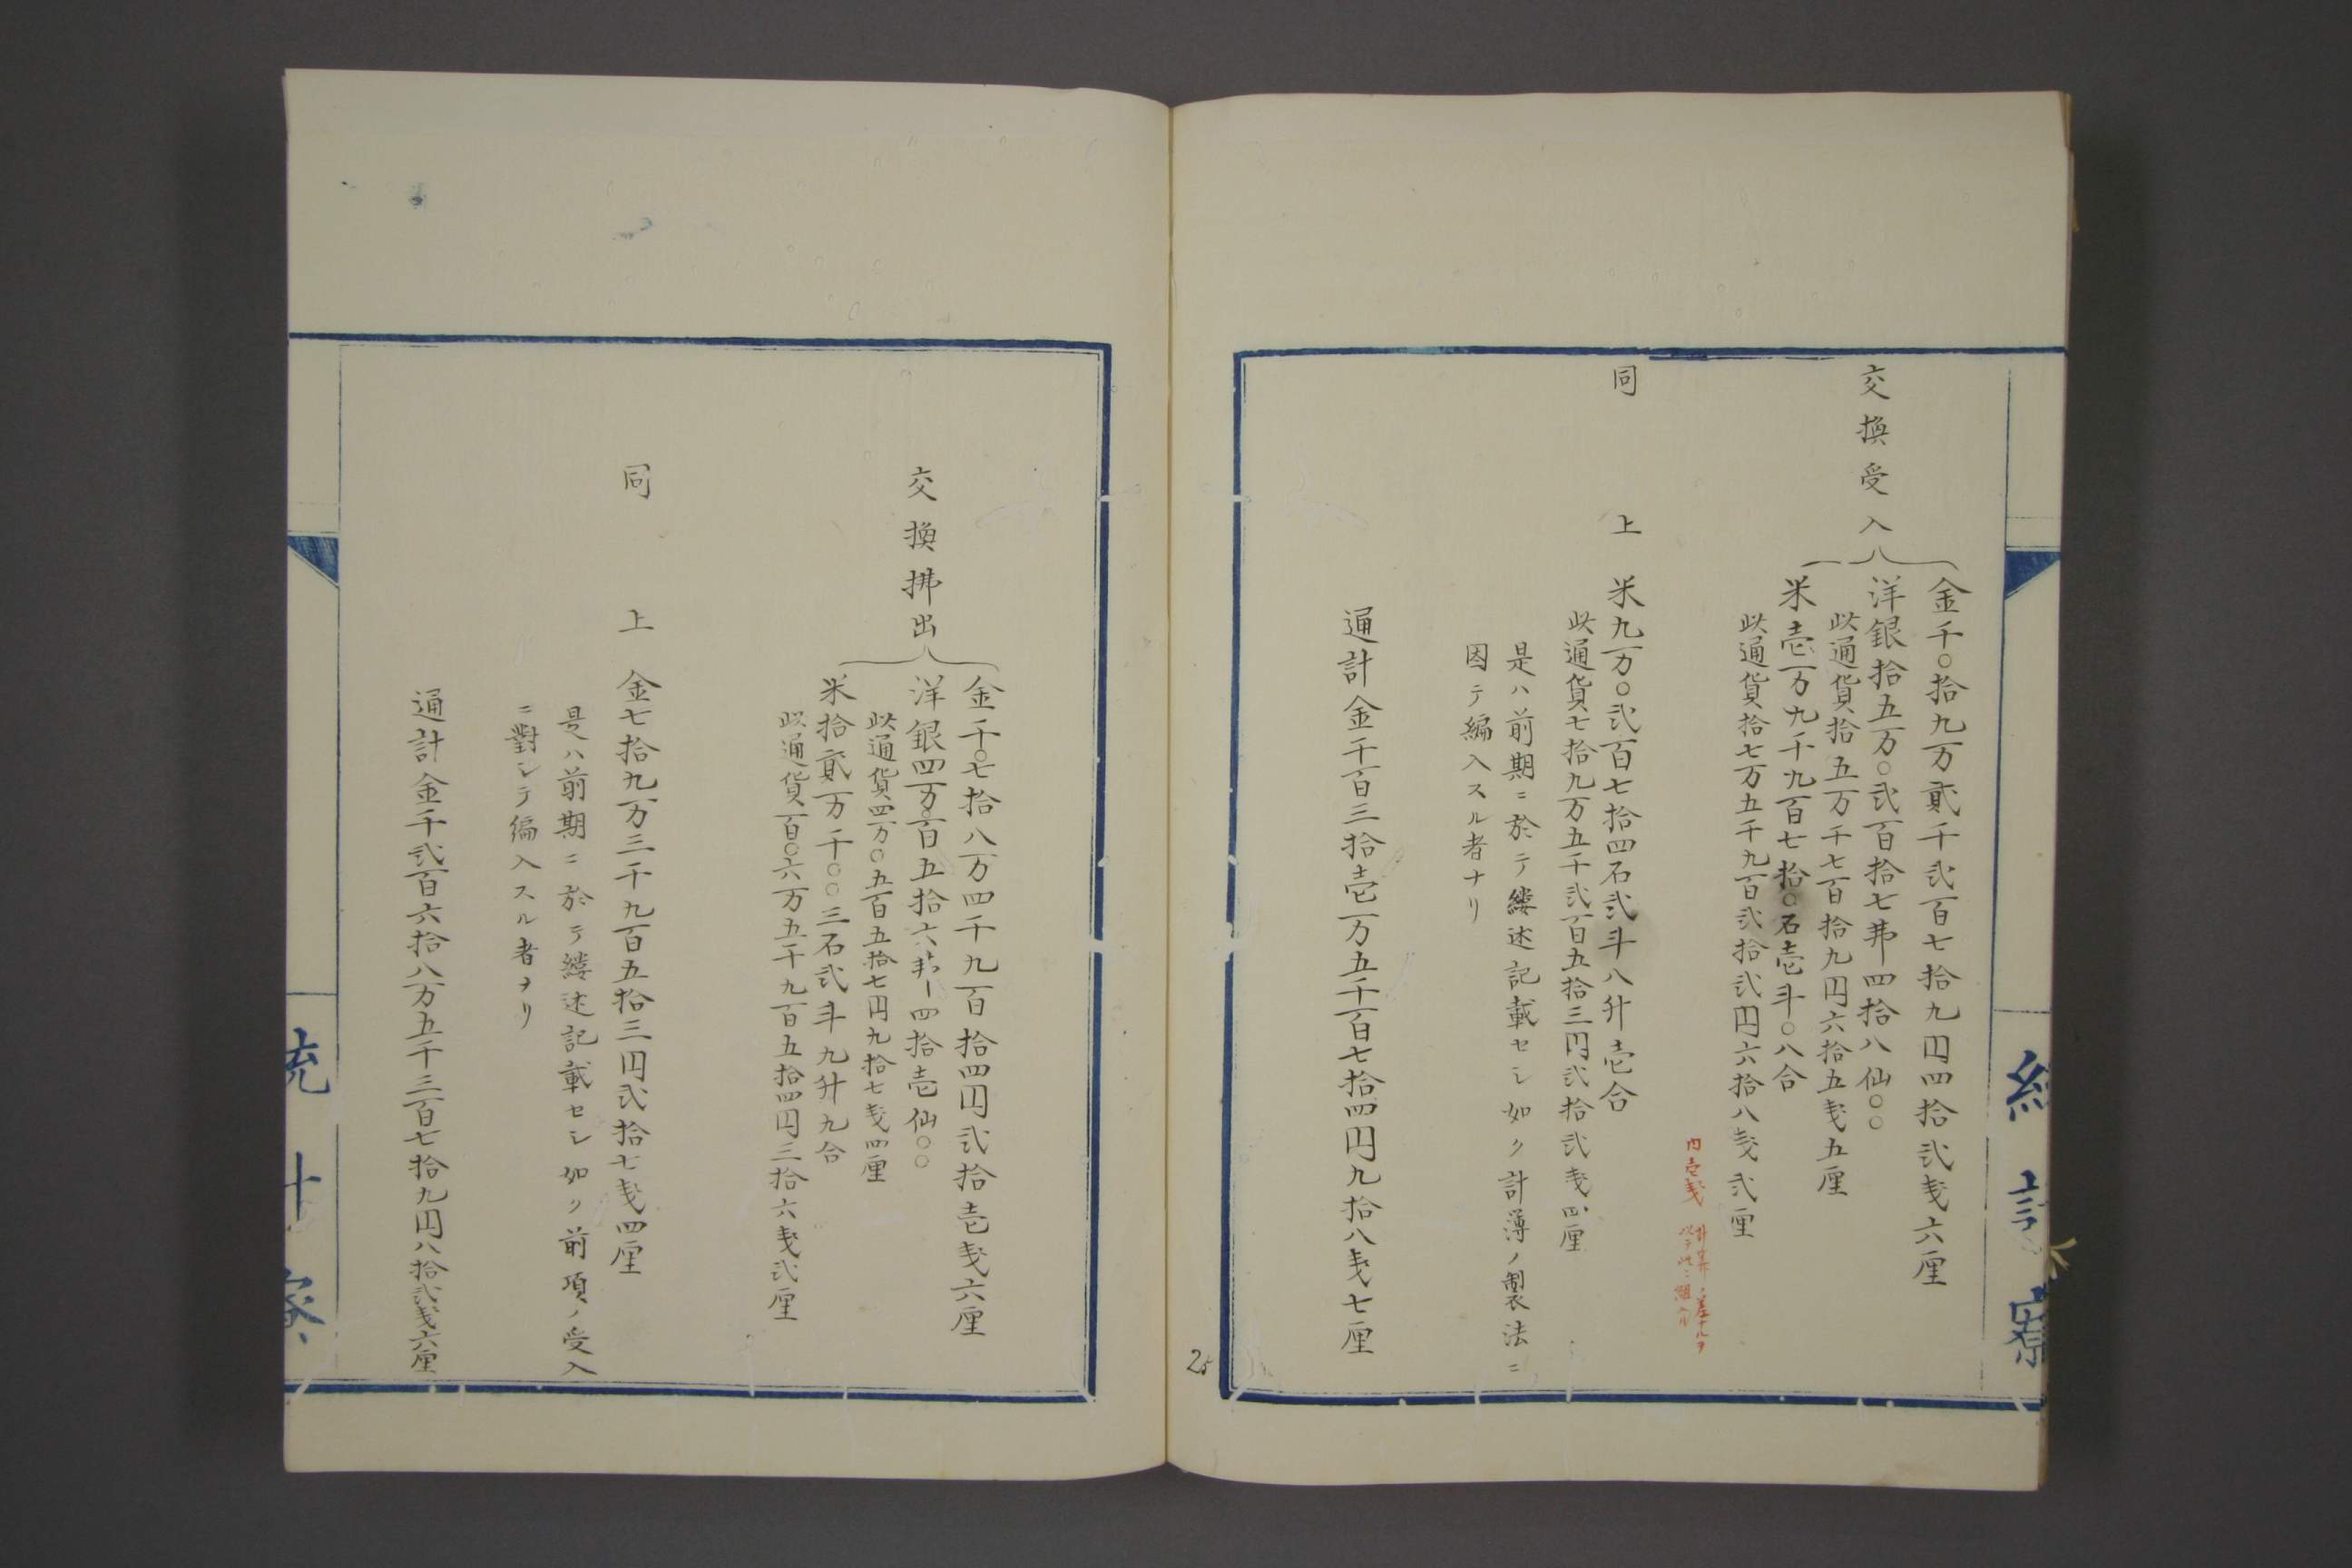 交換受入
金千〇拾九万貳千弐百七拾九円四拾弐戔六厘
洋銀拾五万〇弐百拾七弗四拾八仙〇〇
此通貨拾五万千七百拾九円六拾五戔五厘
米壱万九千九百七拾〇石壱斗〇八合
此通貨拾七万五千九百弐拾弐円六拾八戔弐厘
内壱戔
計算ノ差ナルヲ
以テ此ニ組入ル
同上
米九万〇弐百七拾四石弐斗八升壱合
此通貨七拾九万五千弐百五拾三円弐拾弐戔四厘
是ハ前期ニ於テ縷述記載セシ如ク計薄ノ製法ニ
因テ編入スル者ナリ
通計金千百三拾壱万五千百七拾四円九拾八戔七厘
25
交換拂出
金千〇七拾八万四千九百拾四円弐拾壱戔六厘
洋銀四万〇百五拾六弗四拾壱仙〇〇
此通貨四万〇五百五拾七円九拾七戔四厘
米拾貳万千〇〇三石弐斗九升九合
此通貨百〇六万五千九百五拾四円三拾六戔弐厘
同上
金七拾九万三千九百五拾三円弐拾七戔四厘
是ハ前期ニ於テ縷述記載セシ如ク前項ノ受入
ニ對シテ編入スル者ナリ
通計金千弐百六拾八万五千三百七拾九円八拾弐戔六厘
統計寮